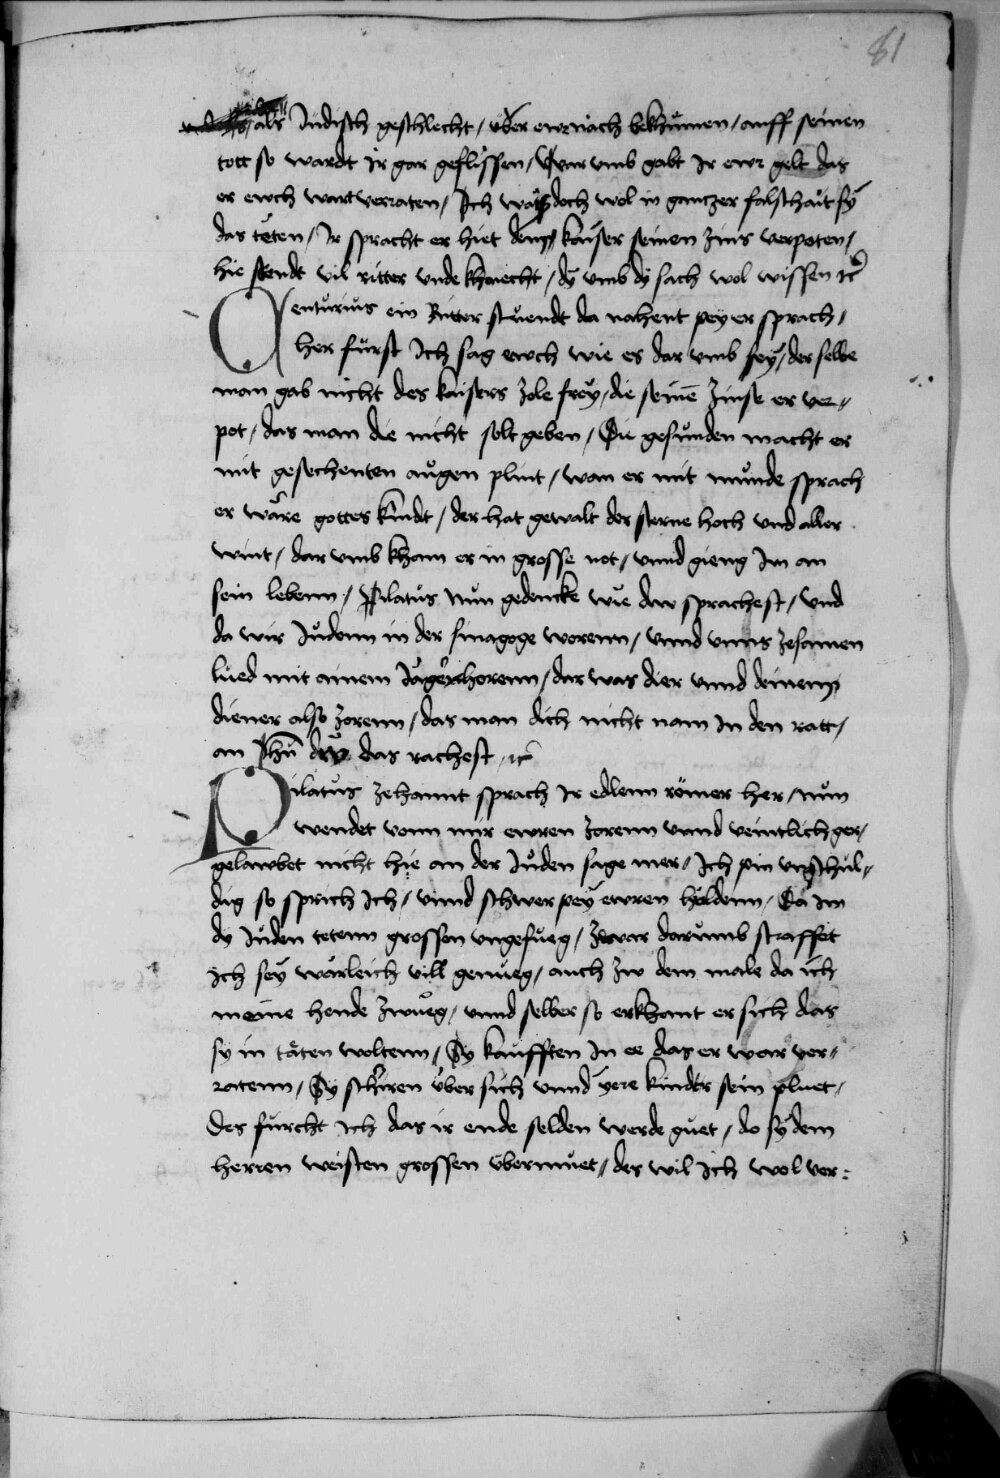 81
als Judisch geschlecht / uber ewr nach bekhumen / auff seinen
tott so wardt ir gar geflissen / Warumb gabt Ir ewr gelt das
er ewch wart verraten / Ich ways doch wol in ganczer falschait sy
das teten / Ir spracht er hiet dem kayser seinen zins verpoten /
hie stendt vil ritter unde khnecht / dy umb dy sach wol wissen rc
Centurius ein Ritter stuendt da nahent pey er sprach /
her furst Ich sag ewch wie es dar umb sey / der selbe
man gab nicht des kaisers zole frey / die seine zinse er ver¬
pot / das man die nicht solt geben / Die gesunden macht er
mit gesechenten augen plint / wan er mit munde sprach
er wäre gottes kindt / der hat gewalt der sterne hoch und aller
wint / dar umb kham er in grosse not / unnd gieng Im an
sein lebenn / Pilatus Nun gedencke wie dw sprachest / und
da wir Judenn in der sinagoge worenn / unnd unns zesamen
lued mit ainem Jägerhorenn / dar was dier unnd deinem
diener also zorenn / das man dich nicht nam In den ratt /
an Jhu dw das rachest rc
Pilatus zehannt sprach Ir edlenn römer her / nun
wendet vonn mir ewren zorenn unnd veintlich ger /
gelawbet nicht hie an der Juden sage mer / Ich pin unschul¬
dig so sprich Ich / unnd schwer pey ewren huldenn / Da Im
dy Juden tetenn grossen ungefueg / zwar darumb straffet
ich sey wärleich vill genueg / auch zw dem male da ich
meine hende zwueg / unnd selber so erkhant er sich das
sy in täten woltenn / Sy kaufften In ee das er war ver¬
ratenn / Sy schriren uber sich unnd yere kinder sein pluet /
Des furcht Ich das ir ende selden werde guet / do sy dem
herren weisten grossen ubermuet / des wil Ich wol ver¬